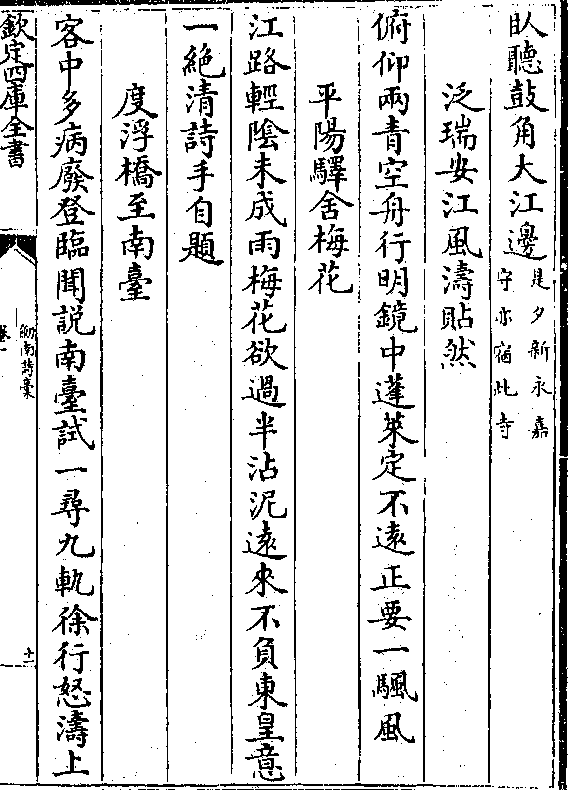 臥聽鼓角大江邊是夕新永嘉
守亦宿此寺
泛瑞安江風濤貼然
俯仰兩青空舟行明鏡中蓬萊定不遠正要一颿風
平陽驛舍梅花
江路輕陰未成雨梅花欲過半沾泥遠來不負東皇意
一絶清詩手自題
度浮橋至南臺
客中多病廢登臨聞説南臺試一尋九軌徐行怒濤上
欽定四庫全書
劒南詩藁
卷一
十一